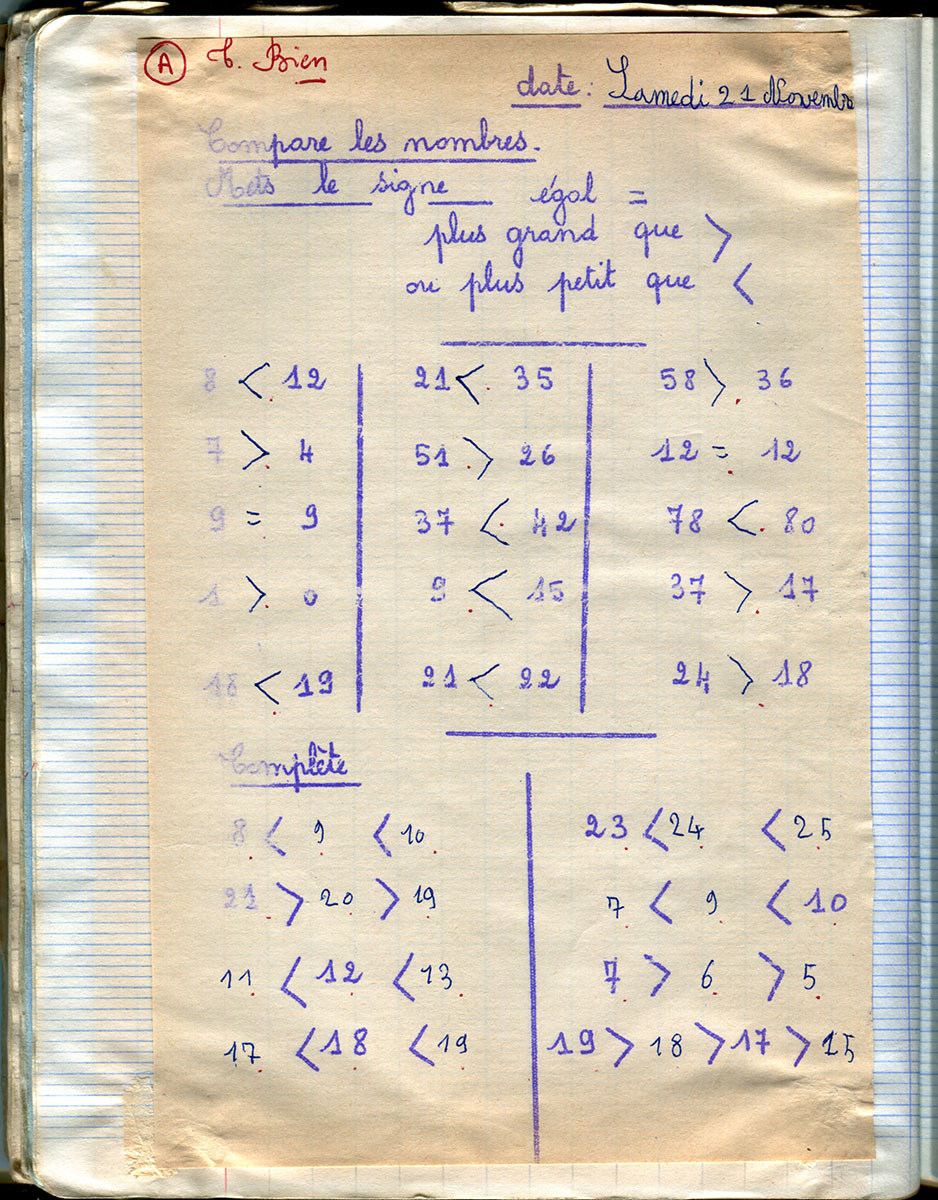 A T. Bien
date : Samedi 21 Novembr
Compare les nombres.
Mets le signe égal =
plus grand que >
ou plus petit que <
8 < 12 21 < 35 58 > 36
7 > 4 51 > 26 12 = 12
9 = 9 37 < 42 78 < 80
1 > 0 9 < 15 37 > 17
18 < 19 21 < 22 24 > 18
Complète
8 < 9 < 10 23 < 24 < 25
21 > 20 > 19 7 < 9 < 10
11 < 12 < 13 7 > 6 > 5
17 < 18 < 19 19 > 18 > 17 > 15